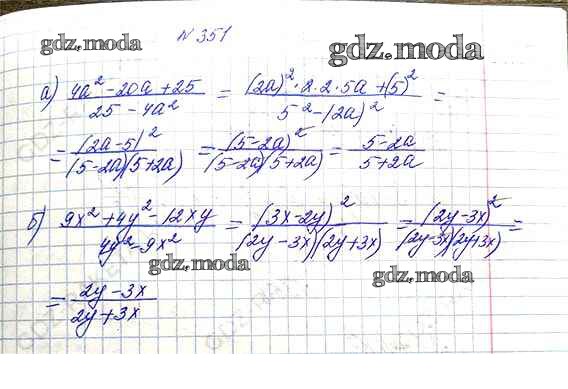 gdz.moda
№ 351
gdz.moda
а) (4a² - 20a + 25)/(25 - 4a²) = ((2a)² · 2 · 2 · 5a + (5)²)/(5² - (2a)²) =
= (2a-5)²/((5-2a)(5+2a)) = (5-2a)²/((5-2a)(5+2a)) = (5-2a)/(5+2a)
б) (9x² + 4y² - 12xy)/(4y² - 9x²) = (3x-2y)²/((2y-3x)(2y+3x)) = (2y-3x)²/((2y-3x)(2y+3x)) =
gdz.moda
gdz.moda
= (2y-3x)/(2y+3x)